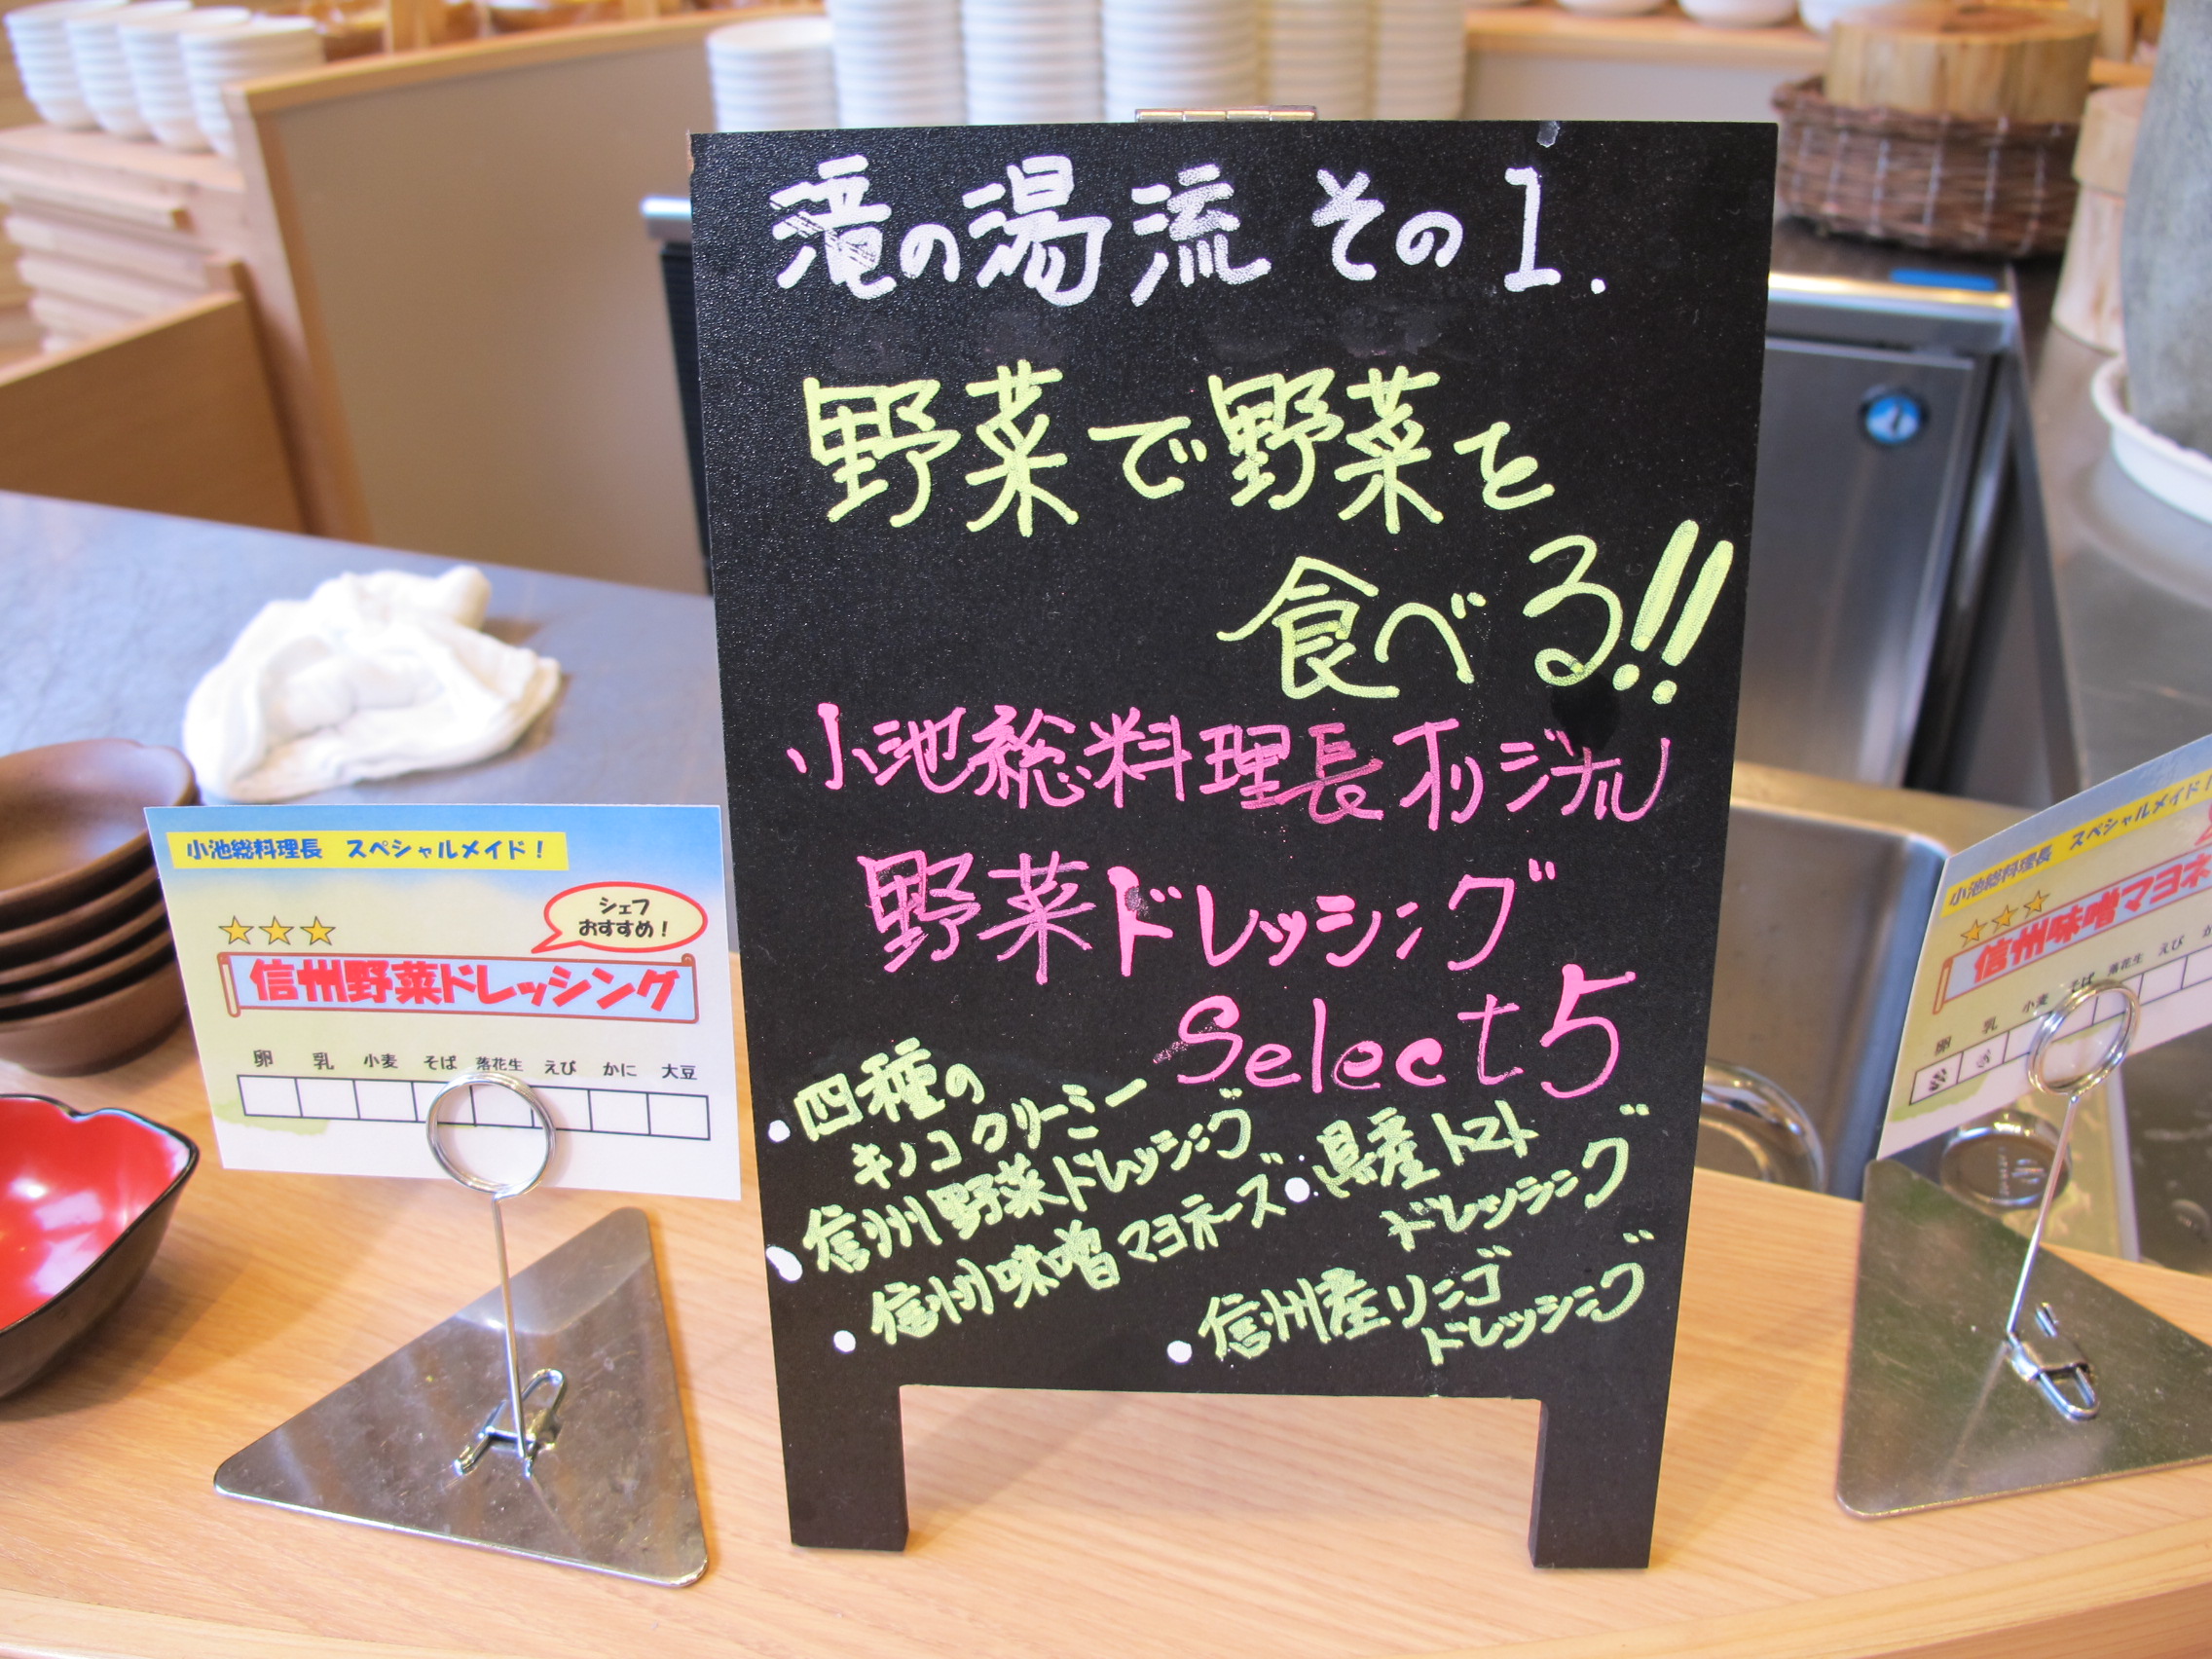 滝の湯流 その1.
野菜で野菜を
食べる!!
小池総料理長オリジナル
野菜ドレッシング
Select 5
・四種の
キノコクリーミー
・信州野菜ドレッシング
・信州味噌マヨネーズ
・県産トマト
ドレッシング
・信州産リンゴ
ドレッシング
小池総料理長 スペシャルメイド！
シェフ
おすすめ！
★★★
信州野菜ドレッシング
卵 乳 小麦 そば 落花生 えび かに 大豆
小池総料理長 スペシャルメイド！
★★★
信州味噌マヨネ
卵 乳 小麦 そば 落花生 えび か